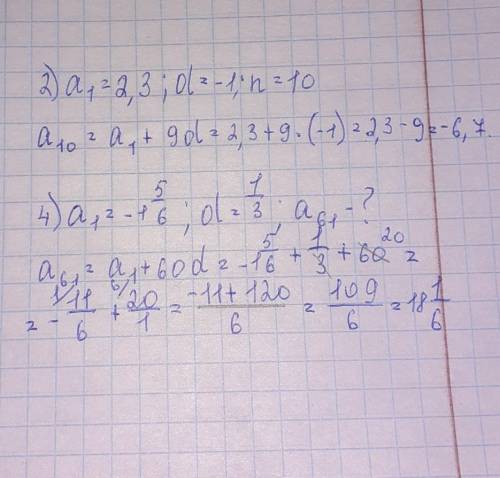 2) a₁ = 2,3 ; d = -1; n = 10
a₁₀ = a₁ + 9d = 2,3 + 9 · (-1) = 2,3 - 9 = -6,7.
4) a₁ = -1 5/6 ; d = 1/3 ; a₆₁ - ?
a₆₁ = a₁ + 60d = -1 5/6 + 1/3 + 60 20 =
= - 11/6 + 20/1 = (-11 + 120)/6 = 109/6 = 18 1/6